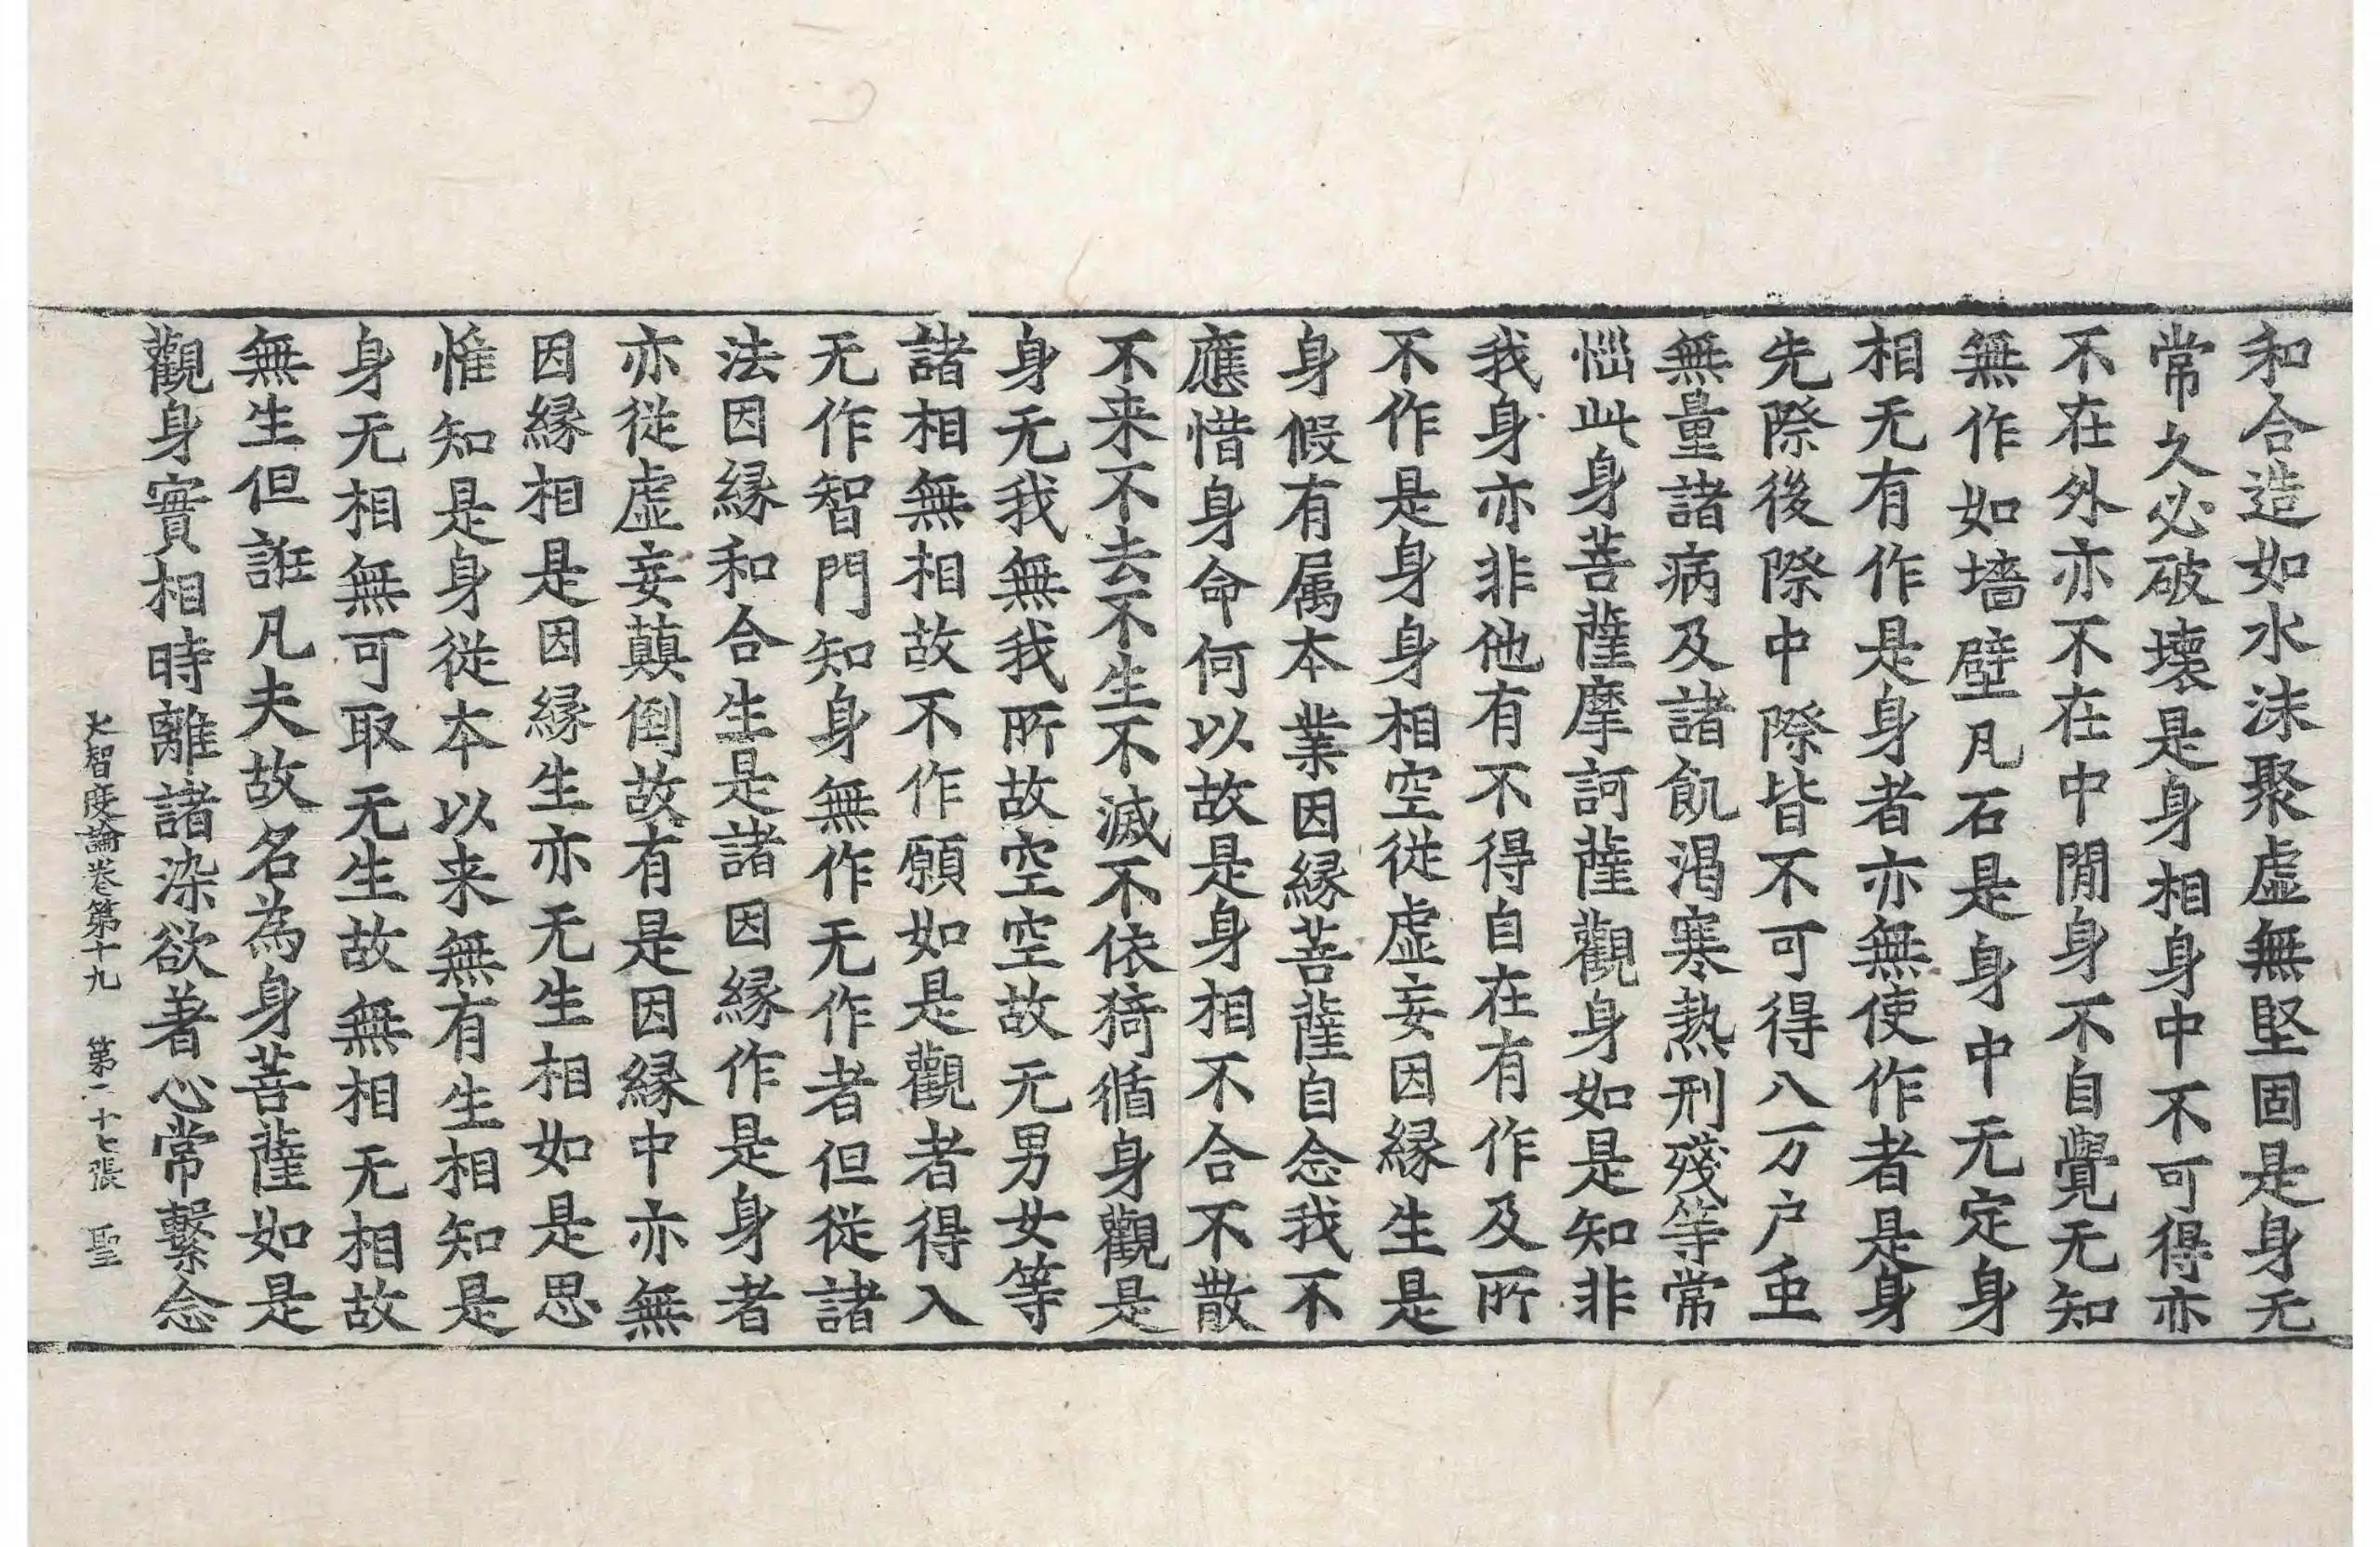 和合造如水沫聚虛無堅固是身无
常久必破壞是身相身中不可得亦
不在外亦不在中閒身不自覺无知
無作如墻壁凡石是身中无定身
相无有作是身者亦無使作者是身
先際後際中際皆不可得八万户䖝
無量諸病及諸飢渴寒熱刑殘等常
惱此身菩薩摩訶薩觀身如是知非
我身亦非他有不得自在有作及所
不作是身身相空従虛妄因縁生是
身假有属本業因縁菩薩自念我不
應惜身命何以故是身相不合不散
不来不去不生不滅不依猗循身觀是
身无我無我所故空空故无男女等
諸相無相故不作願如是觀者得入
无作智門知身無作无作者但従諸
法因縁和合生是諸因縁作是身者
亦従虛妄顛倒故有是因縁中亦無
因縁相是因縁生亦无生相如是思
惟知是身従本以来無有生相知是
身无相無可取无生故無相无相故
無生但誑凡夫故名為身菩薩如是
觀身實相時離諸染欲著心常繫念
大智度論卷第十九 第二十七張 聖